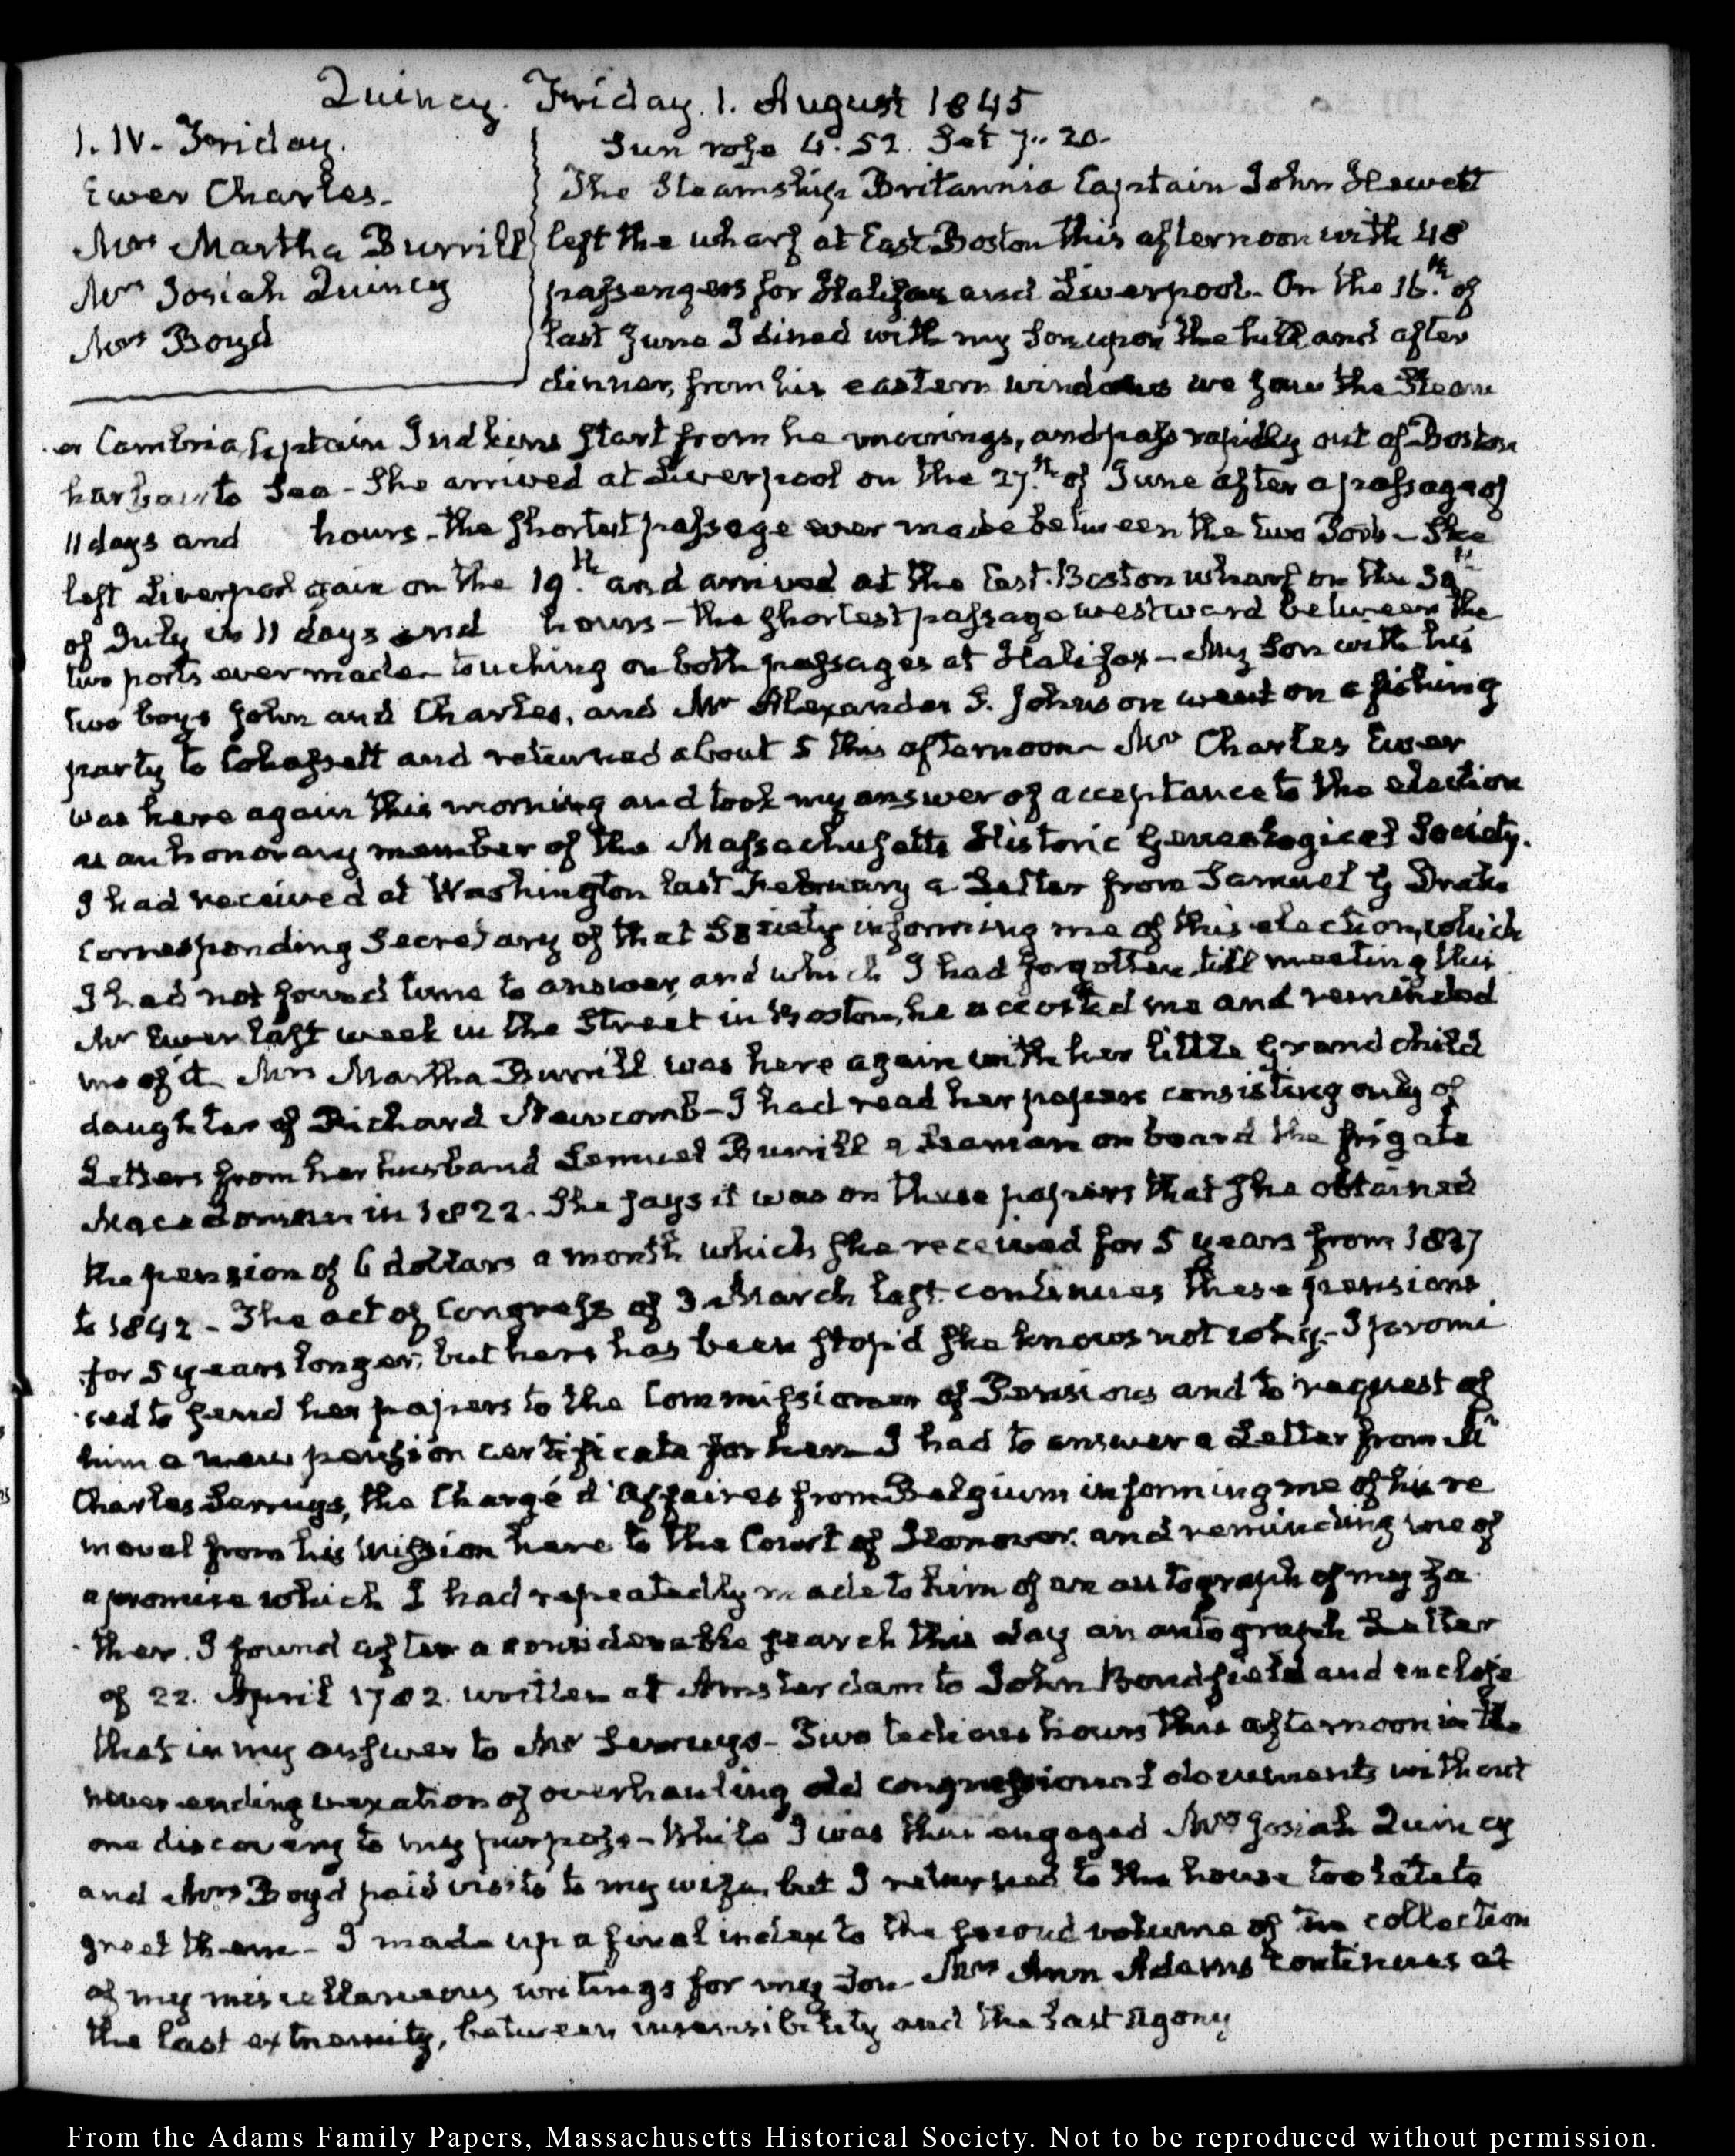 Quincy. Friday. 1. August 1845
1. IV. Friday.
Ewer Charles.
Mrs Martha Burrill
Mrs Josiah Quincy
Mrs Boyd
Sun rose 4. 52. Set 7.. 20.
The Steamship Britannia Captain John Hewett
left the wharf at East Boston this afternoon with 48
passengers for Halifax and Liverpool. On the 16.th of
last June I dined with my Son upon the hill, and after
dinner, from his eastern windows we saw the Steam
er Cambria, Captain Judkins start from her moorings, and pass rapidly out of Boston
harbour to Sea - She arrived at Liverpool on the 27.th of June after a passage of
11 days and hours - the shortest passage ever made between the two Ports - She
left Liverpool again on the 19.th and arrived at the East-Boston wharf on the 30.th
of July in 11 days and hours - the shortest passage westward between the
two ports ever made - touching on both passages at Halifax - My Son with his
two boys John and Charles, and Mr Alexander S. Johnson went on a fishing
party to Cohassett and returned about 5 this afternoon - Mr Charles Ewer
was here again this morning and took my answer of acceptance to the election
as an honorary member of the Massachusetts Historic Genealogical Society.
I had received at Washington last February a Letter from Samuel G Drake
Corresponding Secretary of that Society informing me of this election, which
I had not found time to answer, and which I had forgotten, till meeting this
Mr Ewer last week in the Street in Boston, he accosted me and reminded
me of it Mrs Martha Burrill was here again with her little Grand child
daughter of Richard Newcomb - I had read her papers consisting only of
Letters from her husband Lemuel Burrill a Seaman on board the frigate
Macedonian in 1822. She says it was on these papers that she obtained
the pension of 6 dollars a month which she received for 5 years from 1837
to 1842 - The act of Congress of 3 March last continues these pensions
for 5 years longer, but hers has been stop'd she knows not why - I promi
sed to send her papers to the Commissioner of Pensions and to request of
him a new pension certificate for her - I had to answer a Letter from Mr
Charles Serruys, the Chargé d'Affaires from Belgium informing me of his re
moval from his Mission here to the Court of Hanover, and reminding me of
a promise which I had repeatedly made to him of an autograph of my Fa
ther. I found after a considerable search this day an autograph Letter
of 22. April 1782. written at Amsterdam to John Bondfield and enclose
that in my answer to Mr Serruys - Two tedious hours this afternoon in the
never ending vexation of overhauling old congressional documents without
one discovery to my purpose - While I was thus engaged Mrs Josiah Quincy
and Mrs Boyd paid visits to my wife, but I returned to the house too late to
greet them - I made up a final index to the second volume of the collection
of my miscellaneous writings for my Son - Mrs Ann Adams continues at
the last extremity, between insensibility and the last Agony
From the Adams Family Papers, Massachusetts Historical Society. Not to be reproduced without permission.